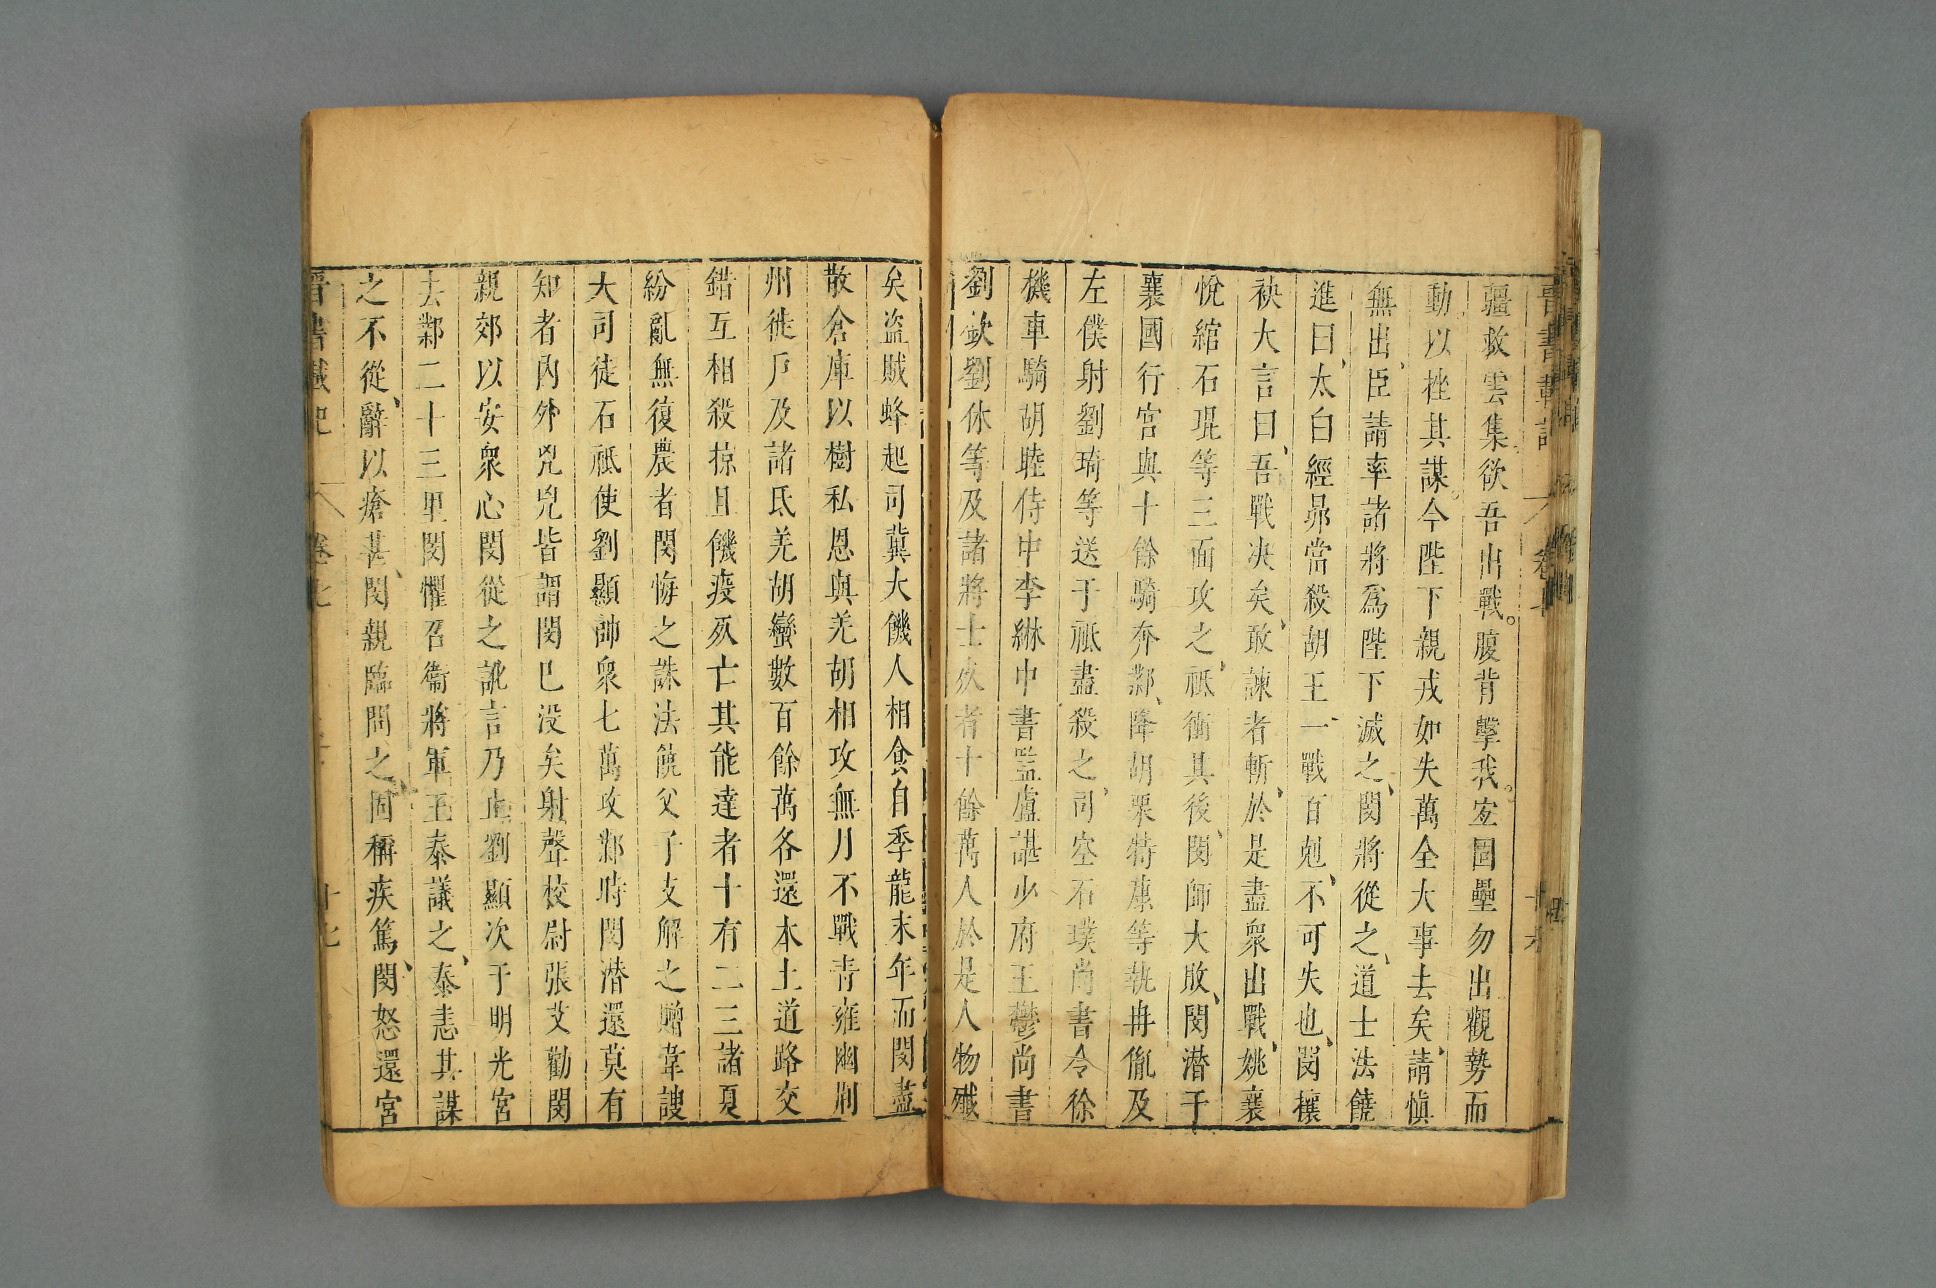 晉書載記 卷七 十六
疆救雲集欲吾出戰。腹背擊我。宜固壘勿出觀勢而
動以挫其謀。今陛下親戎如失萬全大事去矣、請慎
無出、臣請率諸將爲陛下滅之、閔將從之、道士法饒
進曰、太白經昴當殺胡王一戰百剋、不可失也、閔攘
袂大言曰、吾戰決矣、敢諫者斬、於是盡衆出戰、姚襄
悅綰石琨等三面攻之、祗衝其後、閔師大敗、閔潛于
襄國行宮與十餘騎奔鄴、降胡栗特康等執冉胤及
左僕射劉琦等送于祗盡殺之、司空石璞尚書令徐
機車騎胡睦侍中李綝中書監盧諶少府王鬱尚書
劉欽劉休等及諸將士死者十餘萬人於是人物殲
矣盗賊蜂起司冀大饑人相食自季龍末年而閔盡
散倉庫以樹私恩與羌胡相攻無月不戰青雍幽荆
州徙戶及諸氐羌胡蠻數百餘萬各還本土道路交
錯互相殺掠且饑疫死亡其能達者十有二三諸夏
紛亂無復農者閔悔之誅法饒父子支解之贈韋謏
大司徒石祗使劉顯帥衆七萬攻鄴時閔潛還莫有
知者內外兇兇皆謂閔已没矣射聲校尉張艾勸閔
親郊以安衆心閔從之訛言乃止劉顯次于明光宮
去鄴二十三里閔懼召衞將軍王泰議之、泰恚其謀
之不從、辭以瘡甚、閔親臨問之、固稱疾篤、閔怒還宮
晉書載記 卷七 十七